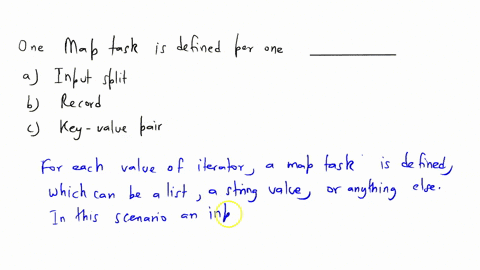 One Map task is defined per one ________
a) Input split
b) Record
c) Key-value pair
For each value of iterator, a map task is defined,
which can be a list, a string value, or anything else.
In this scenario an inp